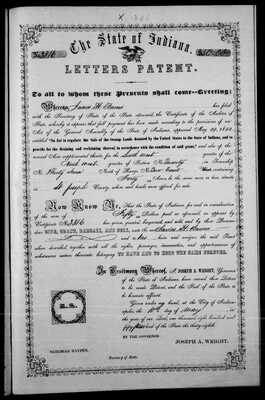 The State of Indiana.
LETTERS PATENT.
To all to whom these Presents shall come—Greeting:
Whereas, James M. has filed
with the Secretary of State of the State aforesaid, the Certificate of the Auditor of
State, whereby it appears that full payment has been made according to the provisions of an
Act of the General Assembly of the State of Indiana, approved May
entitled "An Act to regulate the Sale of the Swamp Lands donated by the United States to the State of Indiana, and to
provide for the draining and reclaiming thereof, in accordance with the condition of said grant," and also of the
several Acts supplemental thereto for the South west quarter of the
North west quarter of Section Twenty in Township
No. Thirty North of Range No.
Forty Acres be the same more or less, situate
in County when said lands were offered for sale.
Now Know Ye, That the State of Indiana, for and in consideration
of the sum of Fifty Dollars, paid as aforesaid, as appears by
Certificate No. 3516 has given, granted, bargained and sold, and by these Presents
does GIVE, GRANT, BARGAIN, AND SELL, unto the said
and to heirs and assigns, the said Tract
above described, together with all the rights, privileges, immunities, and appurtenances of
whatsoever nature thereunto belonging TO HAVE AND TO HOLD THE SAME FOREVER.
L.S.
In Testimony Whereof, I, JOSEPH A. WRIGHT, Governor
of the State of Indiana, have caused these Letters
to be made Patent, and the Seal of the State to
be hereunto affixed.
Given under my hand, at the City of Indiana-
polis, the day of May in
the year of our Lord, one thousand eight hundred and
fifty and of the State the thirty-eighth.
BY THE GOVERNOR.
JOSEPH A. WRIGHT.
NEHEMIAH HAYDEN,
Secretary of State.